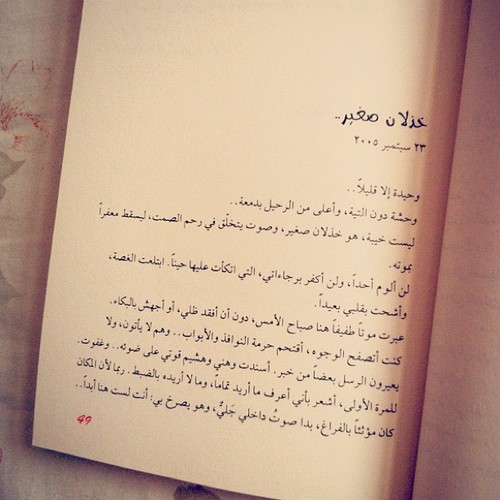 خذلان صغير..
٢٣ سبتمبر ٢٠٠٥
وحيدة إلا قليلاً..
وحشة دون التية، وأعلى من الرحيل بدمعة..
ليست خيبة، هو خذلان صغير، وصوت يتخلّق في رحم الصمت، ليسقط معفراً
بموته.
لن ألوم أحداً، ولن أكفر برجاءاتي، التي اتكأت عليها حيناً. ابتلعت الغصة،
وأشحت بقلبي بعيداً.
عبرت موتاً طفيفاً هنا صباح الأمس، دون أن أفقد ظلي، أو أجهش بالبكاء.
كنت أتصفح الوجوه، أقتحم حرمة النوافذ والأبواب.. وهم لا يأتون، ولا
يعيرون الرسل بعضاً من خبر. أسندت وهني وهشيم قوتي على ضوئه.. وغفوت.
للمرة الأولى، أشعر بأني أعرف ما أريد تماماً، وما لا أريده بالضبط. ربما لأن المكان
كان مؤثثاً بالفراغ، بدا صوتُ داخلي جَليٌّ، وهو يصرخ بي: أنت لست هنا أبداً..
49